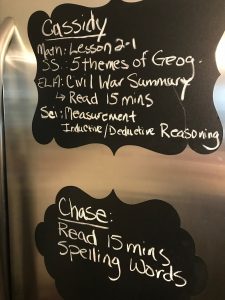 Cassidy
Math: Lesson 2-1
SS: 5 themes of Geog.
ELA: Civil War Summary
↳ Read 15 mins
Sci: Measurement
Inductive/Deductive Reasoning
Chase:
Read 15 mins
Spelling Words